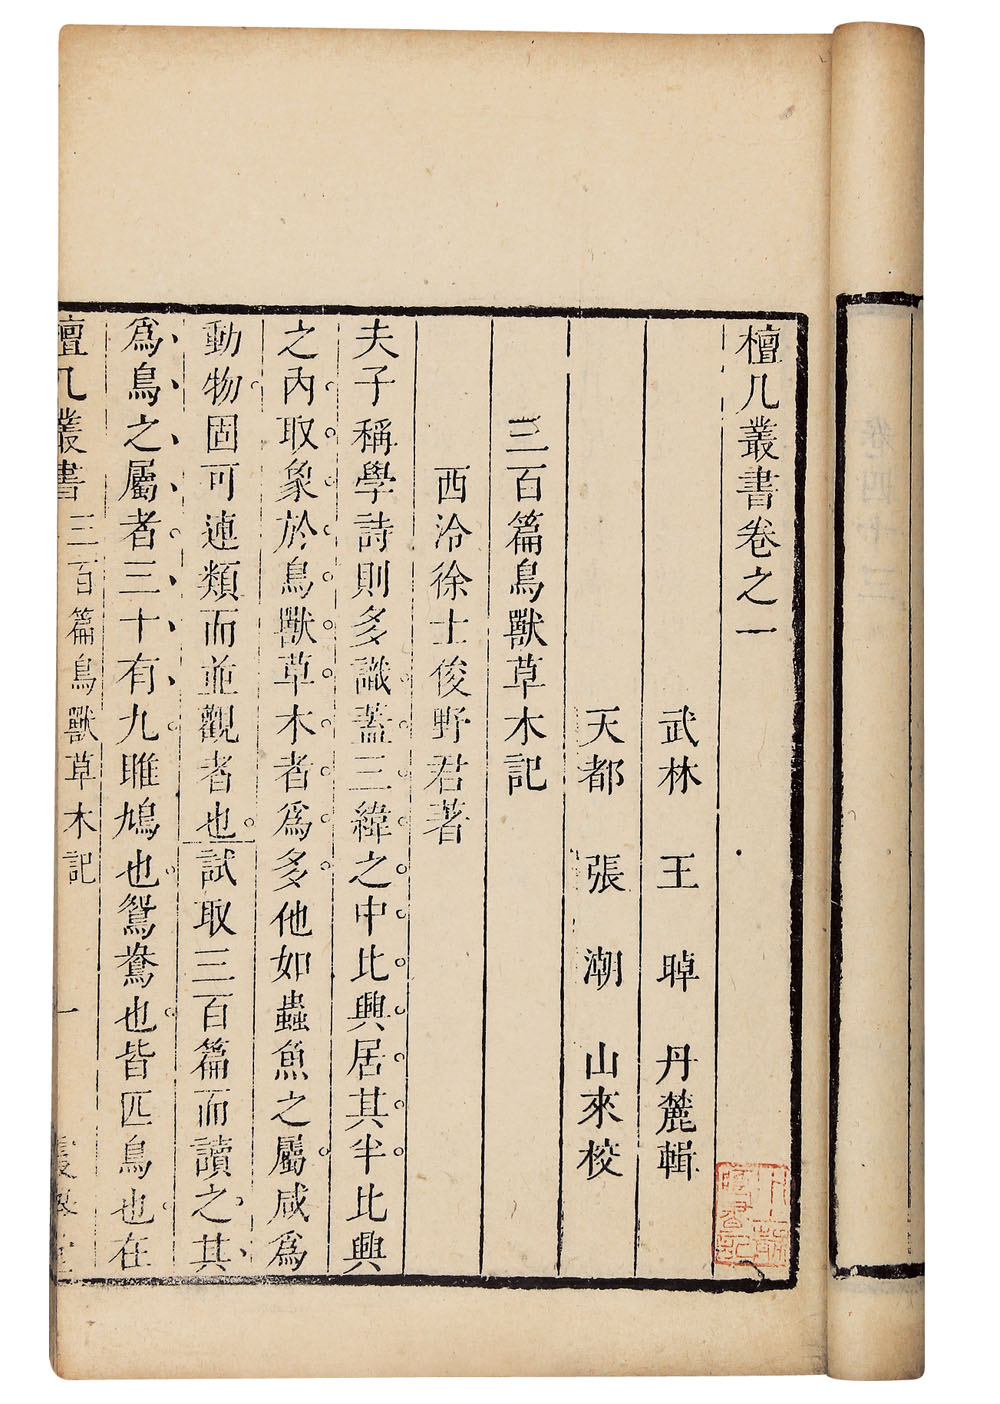 檀几叢書卷之一
武林 王 晫 丹麓輯
天都 張 潮 山來校
三百篇鳥獸草木記
西泠徐士俊野君著
夫子稱學詩則多識蓋三緯之中比興居其半比興
之內取象於鳥獸草木者爲多他如蟲魚之屬咸爲
動物固可連類而並觀者也試取三百篇而讀之其
爲鳥之屬者三十有九雎鳩也鴛鴦也皆匹鳥也在
檀几叢書 三百篇鳥獸草木記 一